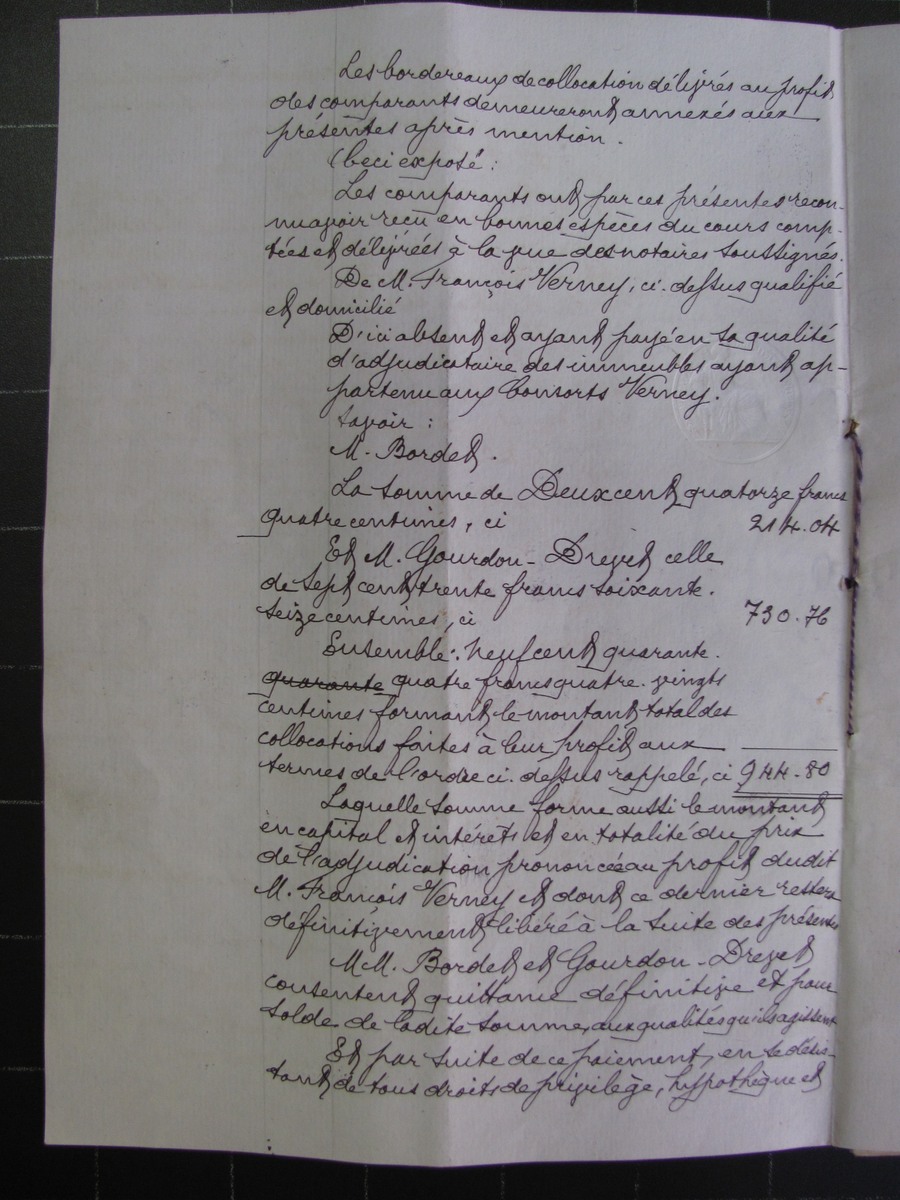 Les bordereaux de collocation délivrés au profit
des comparants demeureront annexés aux
présentes après mention.
Ceci exposé :
Les comparants ont par ces présentes recon-
nu avoir reçu en bonnes espèces du cours comp-
tées et délivrées à la vue des notaires soussignés.
De M. François Verney, ci-dessus qualifié
et domicilié
D'ici absent et ayant payé en sa qualité
d'adjudicataire des immeubles ayant ap-
partenu aux Consorts Verney.
Savoir :
M. Bordet.
La somme de Deux cent quatorze francs
quatre centimes, ci 214.04
Et M. Gourdon-Drevet celle
de sept cent trente francs soixante-
seize centimes, ci 730.76
Ensemble : neuf cent quarante-
quarante quatre francs quatre-vingts
centimes formant le montant total des
collocations faites à leur profit aux
termes de l'ordre ci-dessus rappelé, ci 944.80
Laquelle somme forme aussi le montant
en capital et intérêts et en totalité du prix
de l'adjudication prononcée au profit dudit
M. François Verney et dont ce dernier restera
définitivement libéré à la suite des présentes
MM. Bordet et Gourdon-Drevet
consentent quittance définitive et pour
solde de ladite somme, aux qualités qu'ils agissent
Et par suite de ce paiement, en se désis-
tant de tous droits de privilège, hypothèque et